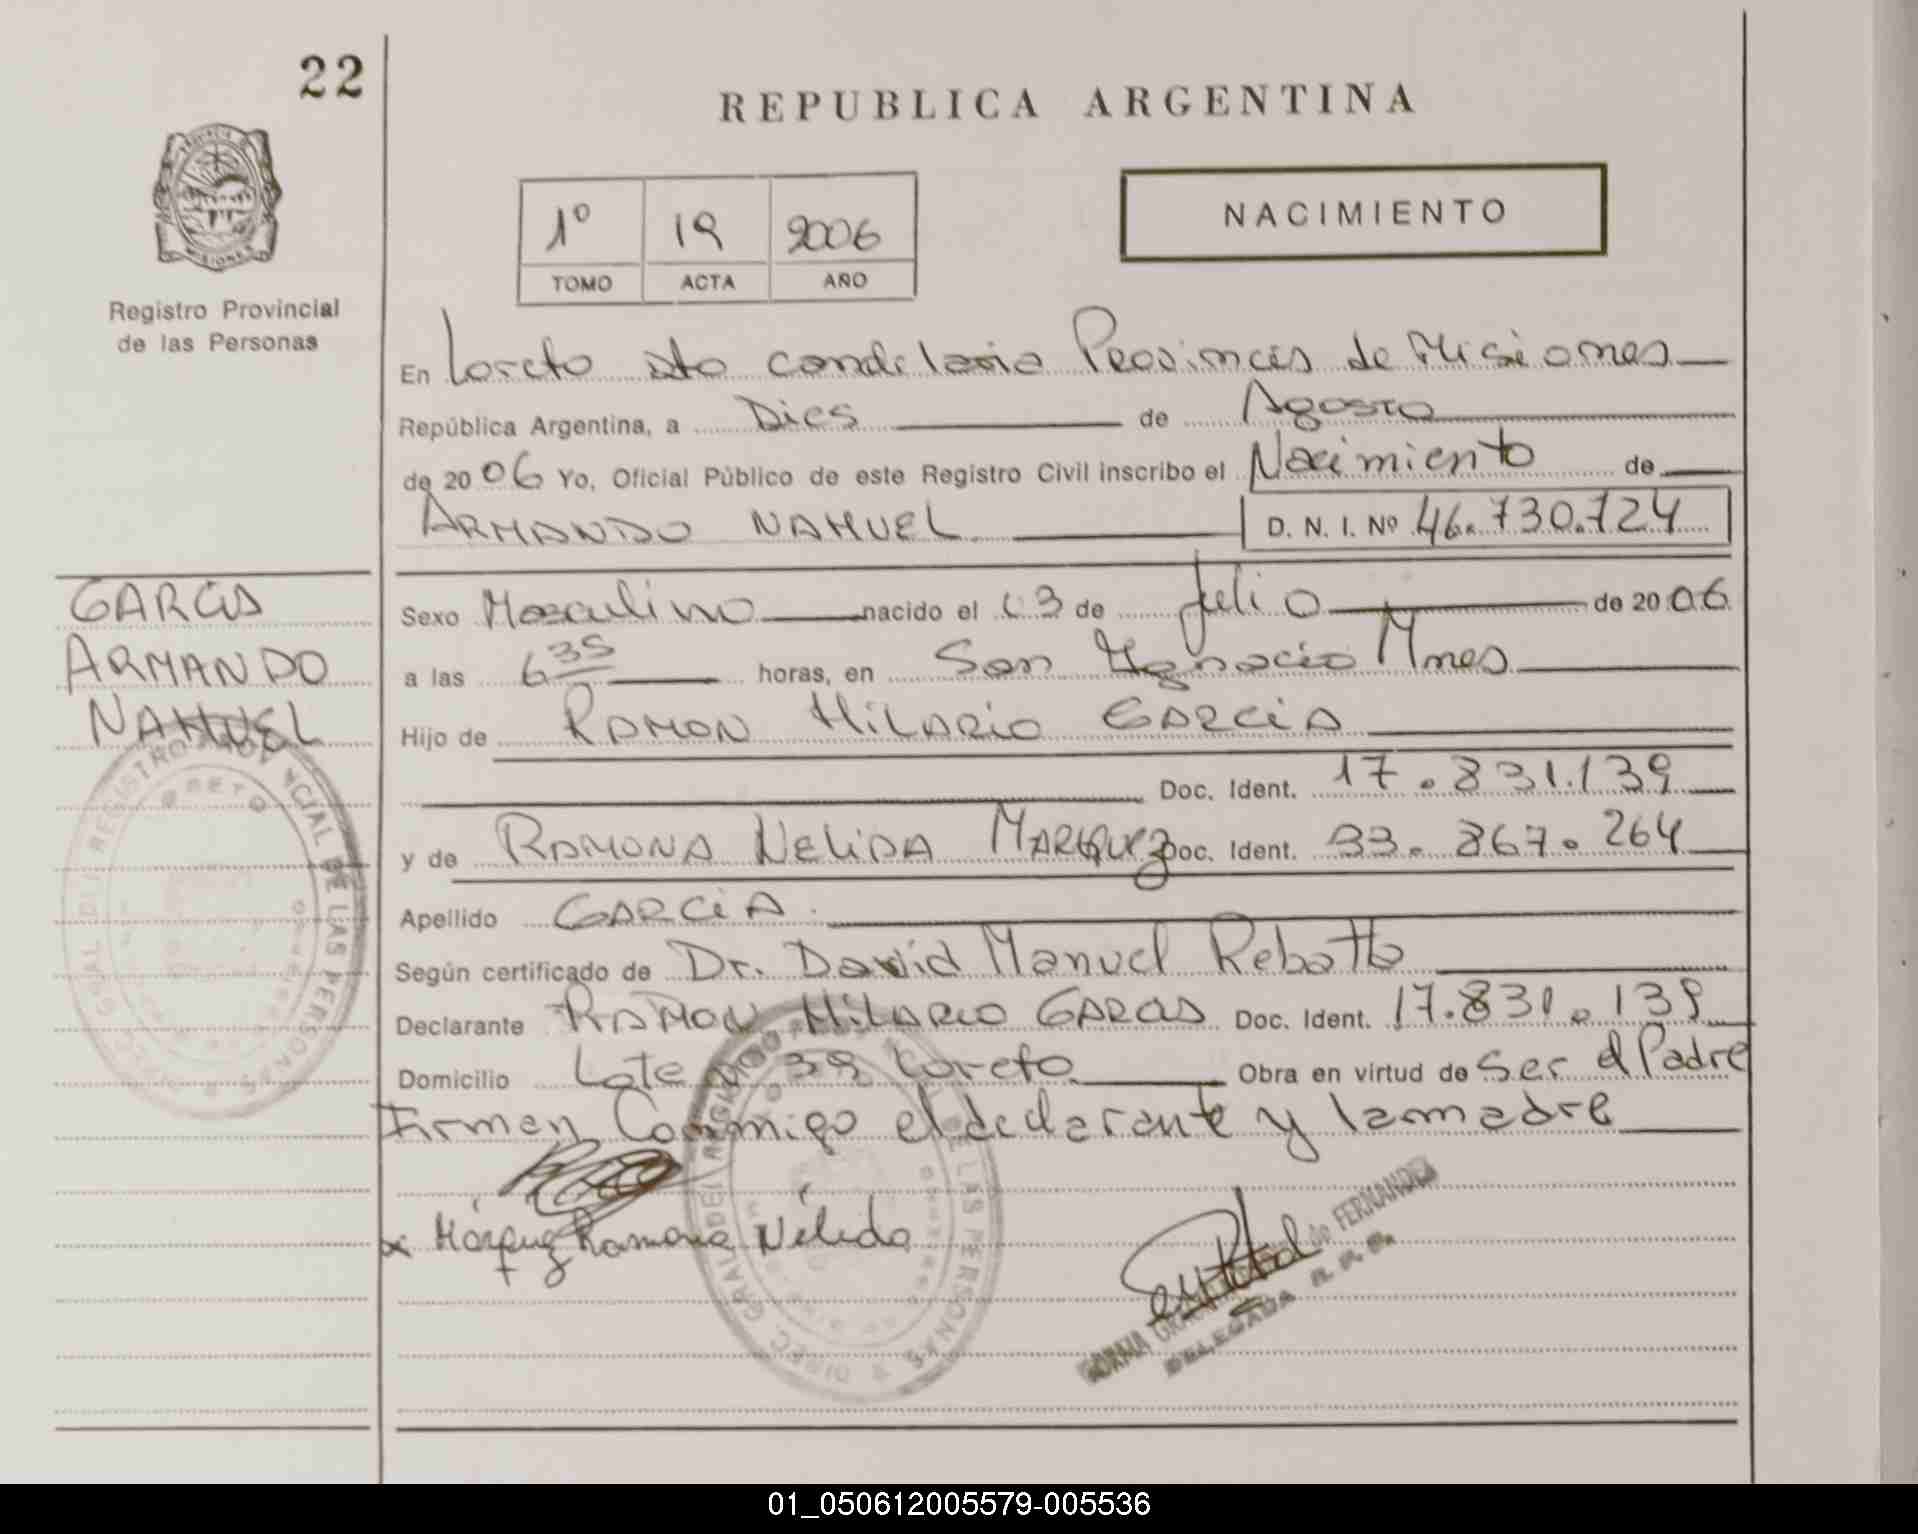 22
REPUBLICA ARGENTINA
1º 19 2006
TOMO ACTA AÑO
NACIMIENTO
Registro Provincial
de las Personas
En Loreto dto candelaria Provincia de Misiones
República Argentina, a Dies de Agosto
de 2006 Yo, Oficial Público de este Registro Civil inscribo el Nacimiento de
ARMANDO NAHUEL D. N. I. Nº 46.730.724
GARCIA
ARMANDO
NAHUEL
Sexo Masculino nacido el 13 de Julio de 2006
a las 6 35 horas, en San Ygnacio Mnes
Hijo de RAMON HILARIO GARCIA
Doc. Ident. 17.831.139
y de RAMONA NELIDA MARQUEZ Doc. Ident. 33.867.264
Apellido GARCIA.
Según certificado de Dr. David Manuel Rebotto
Declarante RAMON HILARIO GARCIA Doc. Ident. 17.831.139
Domicilio Lote 39 Loreto Obra en virtud de Ser el Padre
Firman Conmigo el declarante y la madre
x Márquez Ramona Nélida
FERNANDEZ
DELEGADA R. P. P.
DIREC. GRAL DEL REGISTRO PROVINCIAL DE LAS PERSONAS
LORETO
DIREC. GRAL DEL REGISTRO PROVINCIAL DE LAS PERSONAS
01_050612005579-005536